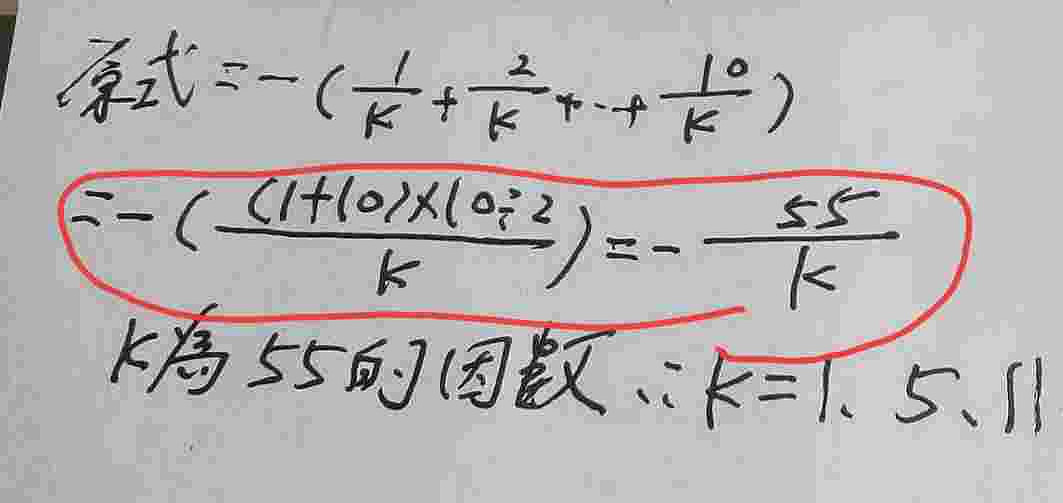 原式=-(1/K+2/K+…+10/K)
=-((1+10)×10÷2/K)=-55/K
K為55的因數∴K=1、5、11